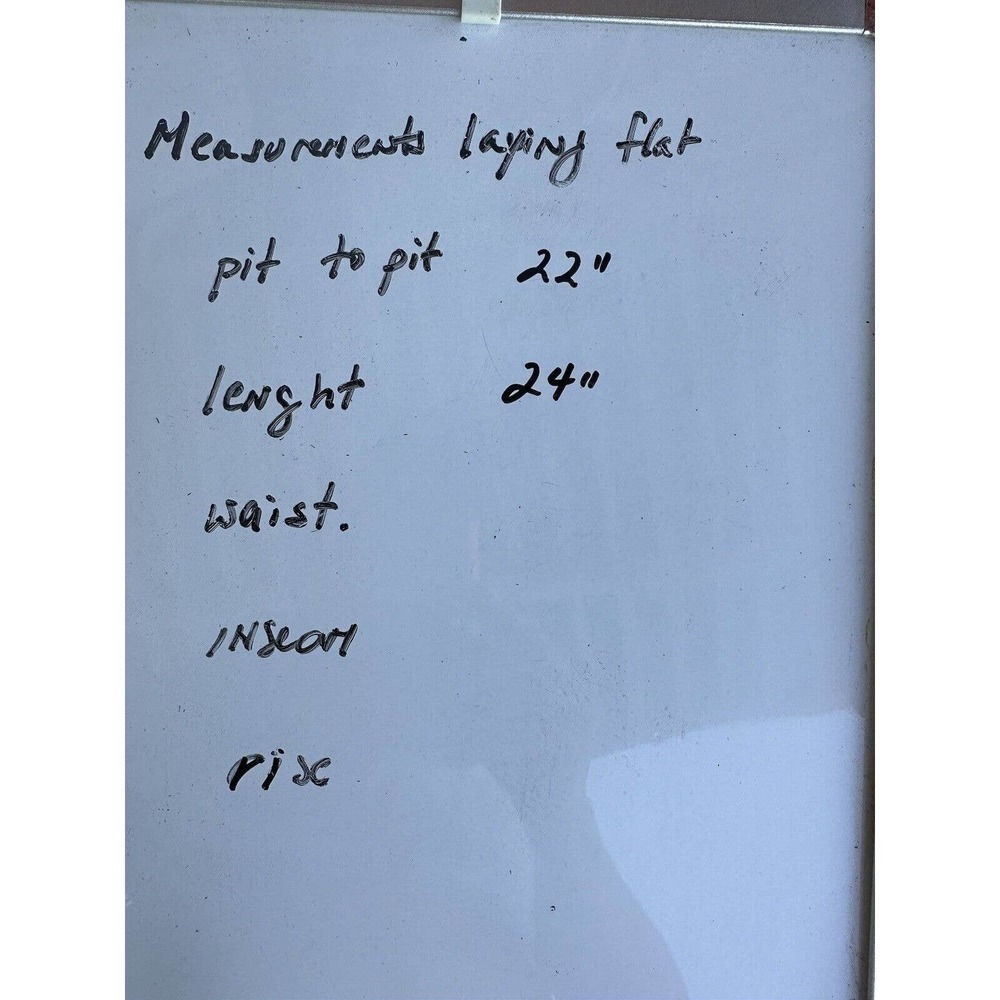 Measurements laying flat
pit to pit 22"
lenght 24"
waist.
INseam
rise